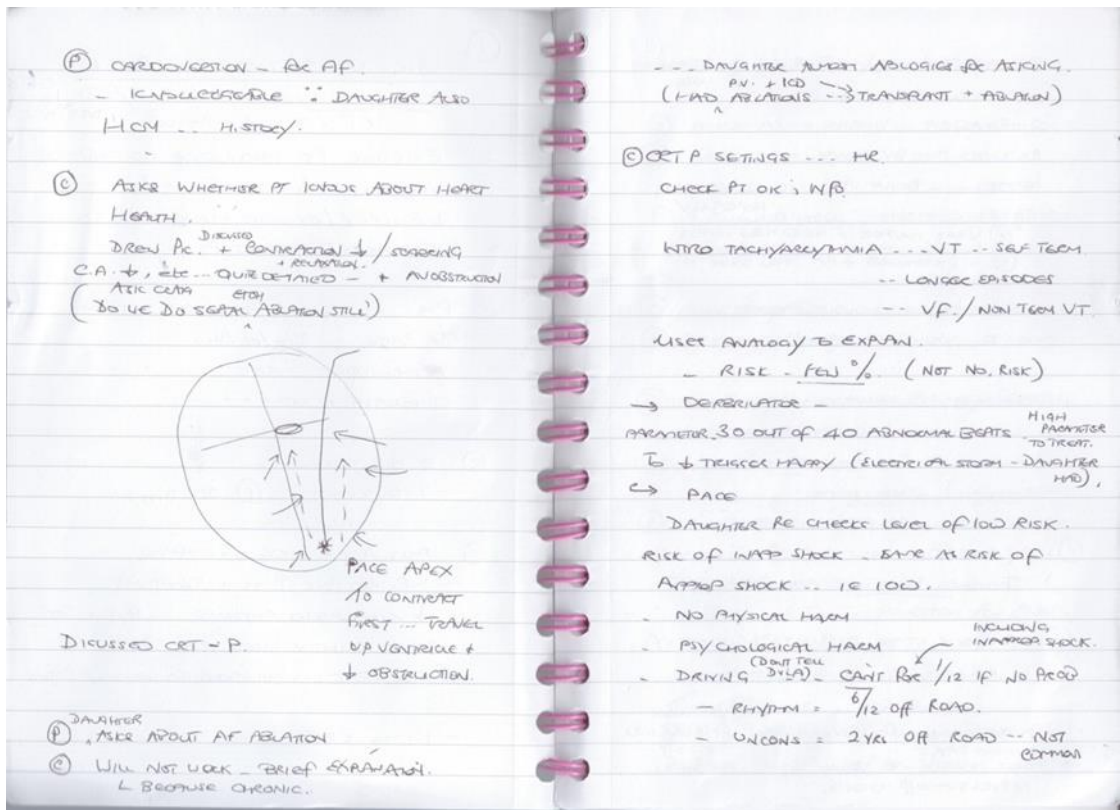 Ⓟ CARDIOVERTION - for AF.
- KNOWLEDGEABLE ∵ DAUGHTER ALSO
HCM .. HISTORY.
Ⓒ ASKS WHETHER PT KNOWS ABOUT HEART
HEALTH.
DISCUSSED
DREW PIC. + CONTRACTION ↓ /
+ RELAXATION.
C.A. ↓, etc ... QUITE DETAILED - + AV OBSTRUCTION
ASK
ETOH
('DO WE DO SEPTAL ABLATION STILL')
PACE APEX
TO CONTRACT
FIRST ... TRAVEL
UP VENTRICLE +
↓ OBSTRUCTION.
DICUSSED CRT - P.
DAUGHTER
Ⓟ . ASKS ABOUT AF ABLATION
Ⓒ WILL NOT WORK - BRIEF EXPLANATION.
L BECAUSE CHRONIC.
- - - DAUGHTER ALMOST for ASKING.
P.V. + ICD
(HAD ABLATIONS --> TRANSPLANT + ABLATION)
Ⓒ CRT P SETINGS ... HR.
CHECK PT OK;
INTRO TACHYARRYTHMIA .... VT .. SELF TERM
-- LONGER EPISODES
-- VF / NON TERM VT.
USES ANALOGY TO EXPLAIN.
- RISK - FEW % (NOT NO, RISK)
→ DEFIBRILATOR -
HIGH
PARAMETER
TO TREAT.
PARAMETER. 30 OUT OF 40 ABNORMAL BEATS
TO ↓ TRIGGER HAPPY (ELECTRICAL STORM - DAUGHTER
HAD),
↳ PACE
DAUGHTER RE CHECKS LEVEL OF LOW RISK.
RISK OF INAPP SHOCK - SAME AS RISK OF
APPROP SHOCK .. IE LOW.
- NO PHYSICAL HARM
- PSYCHOLOGICAL HARM
INCLUDING
INAPPROP SHOCK.
(DON'T TELL
DVLA)
- DRIVING - CAN'T FOR 1/12 IF NO PROB
- RHYTHM = 6/12 OFF ROAD.
- UNCONS = 2 YRS OFF ROAD -- NOT
COMMON